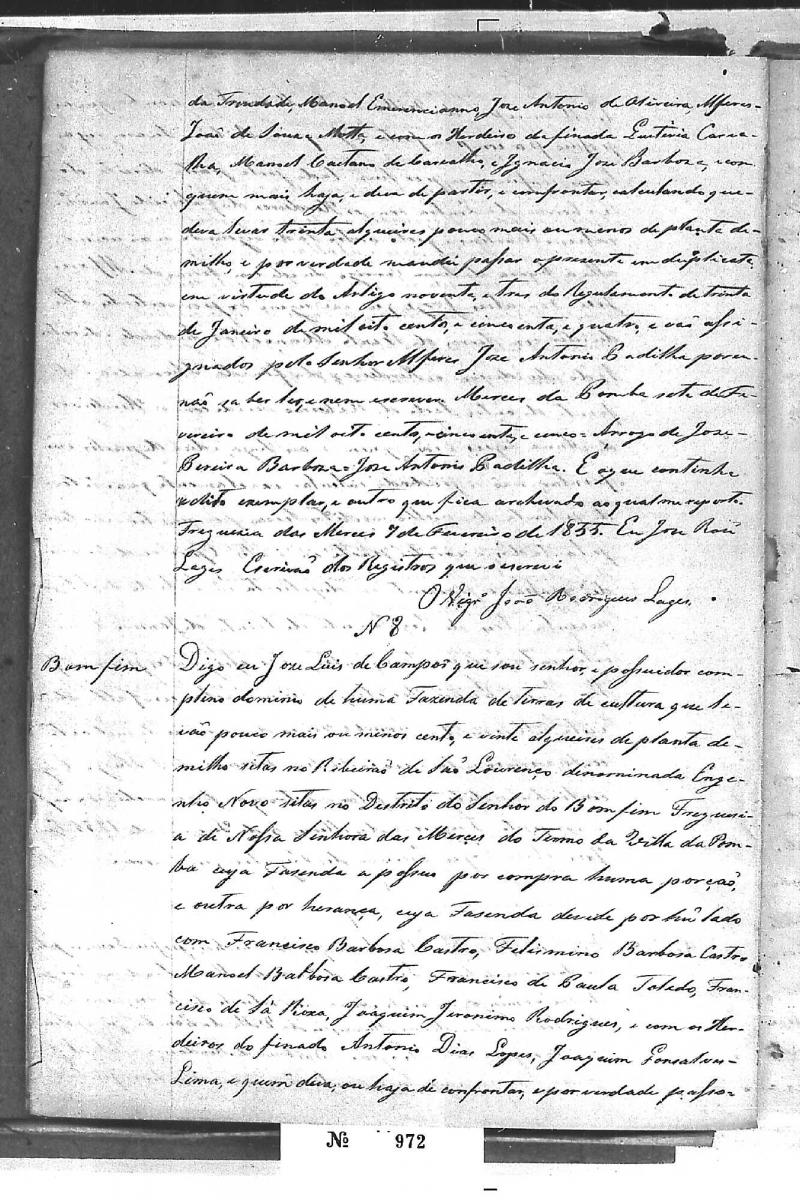 da Trindade, Manoel Emerencianno, Joze Antonio de Oliveira, Alferes
João de Souza e Motta, e com os Herdeiros da finada Euteria Carva-
lha, Manoel Caetano de Carvalho, e Ignacio Joze Barboza, e com
quem mais haja, e deva de partir, e confrontar, calculando que
deva levar trinta alqueires pouco mais ou menos de planta de
milho, e por verdade mandei passar o presente em duplicata,
em virtude do Artigo noventa, e tres do Regulamento de trinta
de Janeiro de mil oito centos, e cincoenta, e quatro, e vão assi-
gnados pelo Senhor Alferes Joze Antonio Padilha por eu
não saber ler, e nem escrever. Merces da Pomba sete de Fe-
vereiro de mil oito centos, e cincoenta, e cinco = Arrogo de Joze
Pereira Barboza = Joze Antonio Padilha. E o que continha
o dito exemplar, e outro que fica archivado ao qual me reporto.
Freguezia das Merces 7 de Fevereiro de 1855. Eu Joze
Lages Escrivão dos Registros que o escrevi
O Vigr.º João Rodrigues Lages.
N 8
Bom fim
Digo eu Joze Luis de Campos que sou senhor, e possuidor com
pleno dominio de huma Fazenda de terras de cultura que le-
vão pouco mais ou menos cento, e vinte alqueires de planta de
milho sitas no Ribeirão de São Lourenço denominada Enge-
nho Novo sitas no Destrito do Senhor do Bom fim Fregues-
ia de Nossa Senhora das Merces do Termo da Villa da Pom-
ba cuja Fazenda a possuo por compra huma porção,
e outra por herança, cuja Fasenda devide por hũ lado
com Francisco Barbosa Castro, Felismino Barbosa Castro
Manoel Balbosa Castro, Francisco de Paula Toledo, Fran-
cisco de Sá Rioxa, Joaquim Jeronimo Rodrigues, e com os Her-
deiros do finado Antonio Dias Lopes, Joaquim Gonsalves
Lima, e quem deva, ou haja de confrontar, e por verdade passo
Nº 972